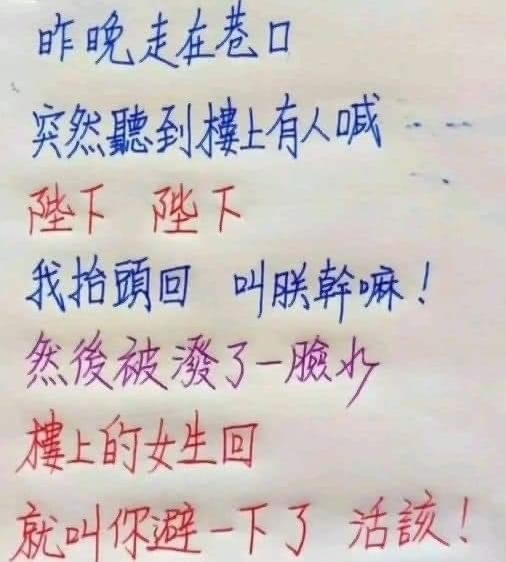 昨晚走在巷口
突然聽到樓上有人喊……
陛下 陛下
我抬頭回 叫朕幹嘛！
然後被潑了一臉水
樓上的女生回
就叫你避一下了 活該！